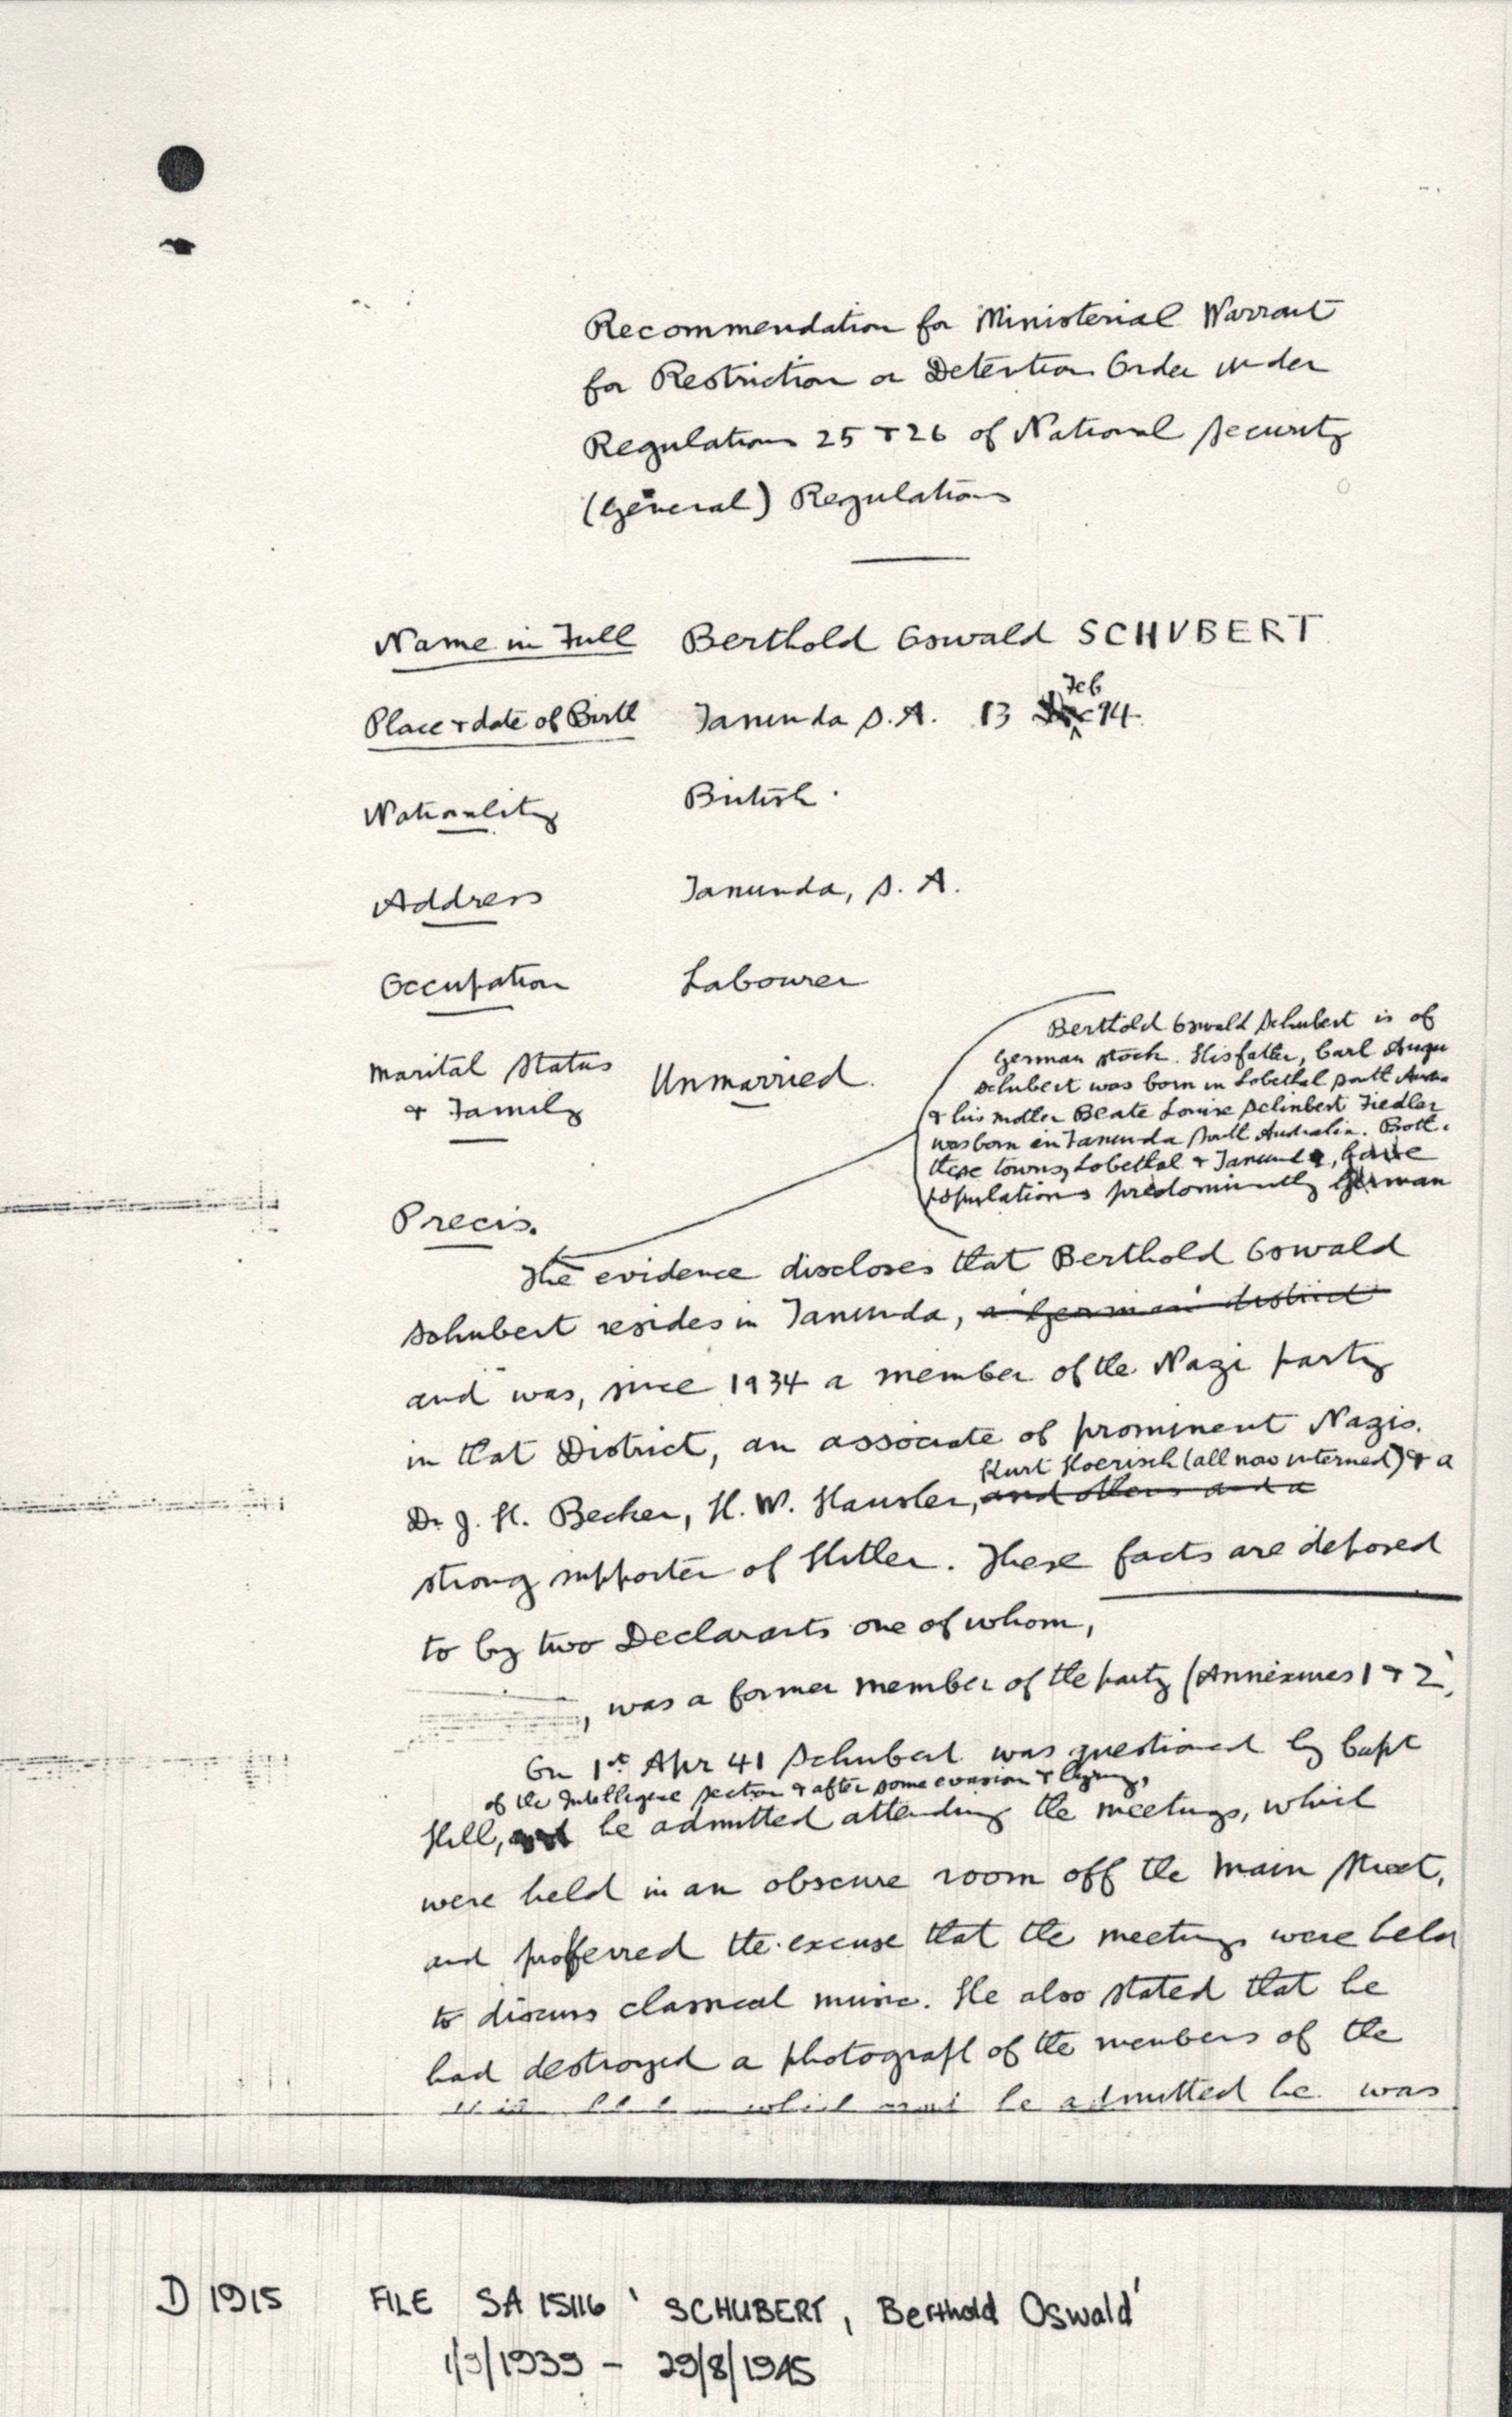 Recommendation for Ministerial Warrant
for Restriction or Detention Order under
Regulations 25 & 26 of National Security
(General) Regulations
Name in Full Berthold Oswald SCHUBERT
Feb
Place & date of Birth Tanunda S.A. 13 Dec 94
Nationality British
Address Tanunda, S. A.
Occupation Labourer
Marital Status Unmarried.
& Family
Berthold Oswald Schubert is of
German stock. His father, Carl Augu
Schubert was born in Lobethal South
& his mother Beate Louise Schubert Fiedler
was born in Tanunda South Australia. Both
these towns, Lobethal & Tanunda, have
populations predominently German
Precis.
The evidence discloses that Berthold Oswald
Schubert resides in Tanunda, a German district
and was, since 1934 a member of the Nazi party
in that District, an associate of prominent Nazis.
Kurt Hoerisch (all now interned) & a
Dr J. H. Becker, H. W. Hausler, and others and a
strong supporter of Hitler. These facts are deposed
to by two Declarants one of whom,
, was a former member of the party (Annexures 1 & 2
On 1st Apr 41 Schubert was questioned by Capt
of the Intelligence Section & after some evasion & lying,
Hill, and he admitted attending the meetings, which
were held in an obscure room off the main street,
and proferred the excuse that the meetings were held
to discuss classical music. He also stated that he
had destroyed a photograph of the members of the
which he admitted he was
D 1915 FILE SA 15116 'SCHUBERT, Berthold Oswald'
1/9/1939 - 29/8/1945